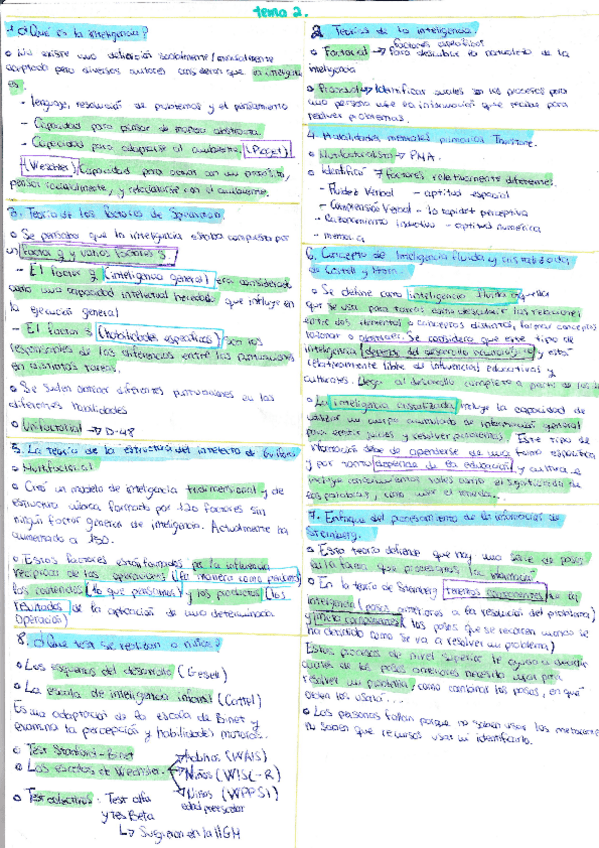 Tema 2.
1. ¿Qué es la inteligencia?
No existe una definición socialmente/
aceptado pero diversos autores consideran que la inteligencia
es:
- lenguaje, resolución de problemas y el pensamiento
- Capacidad para pensar de manera abstracta.
- Capacidad para adaptarse al ambiente (Piaget)
(Weschler) Capacidad para actuar con un propósito,
pensar racionalmente, y relacionarse con el ambiente.
3. Teoría de los factores de Spearman
Se pensaba que la inteligencia estaba compuesta por
un factor g y varios factores s.
- El factor g (inteligencia general) era considerado
como una capacidad intelectual heredada que influye en
la ejecución general
- El factor s (habilidades específicas) son los
responsables de las diferencias entre las puntuaciones
en distintas tareas.
Se suelen obtener diferentes puntuaciones en las
diferentes habilidades
Unifactorial → D-48
5. La teoría de la estructura del intelecto de Guilford
Multifactorial
Creó un modelo de inteligencia tridimensional y de
estructura cúbica formado por 120 factores sin
ningún factor general de inteligencia. Actualmente ha
aumentado a 150.
Estos factores están formados por la influencia
recíproca de las operaciones (la manera como pensamos)
los contenidos (lo que pensamos) y los productos (los
resultados de la aplicación de una determinada
operación)
8. ¿Qué test se realizan a niños?
Los esquemas del desarrollo (Gesell)
La escala de inteligencia infantil (Cattel)
Es una adaptación de la escala de Binet y
examina la percepción y habilidades motoras.
Test Stanford-Binet
Las escalas de Wechsler → Adultos (WAIS)
→ Niños (WISC-R)
→ Niños (WPPSI)
edad preescolar
Test colectivos: Test alfa
y test Beta
↳ Surgieron en la IIGM
2. Teorías de la inteligencia.
factores explicativos
Factorial → para describir la naturaleza de la
inteligencia
Procesual → Identificar cuáles son los procesos para
una persona use la información que recibe para
resolver problemas.
4. Habilidades mentales primarias Thurstone.
Multifactorialista → PMA.
Identificó 7 factores relativamente diferentes.
- Fluidez Verbal - aptitud espacial
- Comprensión Verbal - la rapidez perceptiva
- Razonamiento inductivo - aptitud numérica
- memoria
6. Concepto de inteligencia fluida y cristalizada
de Cattell y Horn.
Se define como inteligencia fluida aquella
que se usa para tareas como descubrir las relaciones
entre dos elementos o conceptos distintos, formar conceptos
razonar o abstraer. Se considera que este tipo de
inteligencia depende del desarrollo neurológico y está
relativamente libre de influencias educativas y
culturales. Llega al desarrollo completo a partir de los
La inteligencia cristalizada incluye la capacidad de
utilizar un cuerpo acumulado de información general
para emitir juicios y resolver problemas. Este tipo de
información debe de aprenderse de una forma específica
y por tanto depende de la educación y cultura e
incluye conocimientos tales como el significado de
las palabras, cómo
7. Enfoque del procesamiento de la información de
Sternberg.
Esta teoría defiende que hay una serie de pasos
en la forma que procesamos la información
En la teoría de Sternberg tenemos componentes de la
inteligencia (pasos anteriores a la resolución del problema)
y metacomponentes (los pasos que se recorren cuando se
ha decidido cómo se va a resolver un problema)
Estos procesos de nivel superior te ayudan a decidir
cuáles de los pasos anteriores necesita usar para
resolver un problema, cómo combinar los pasos, en qué
orden los usarás...
Las personas fallan porque no saben usar los
no saben que recursos usar ni identificarlo.